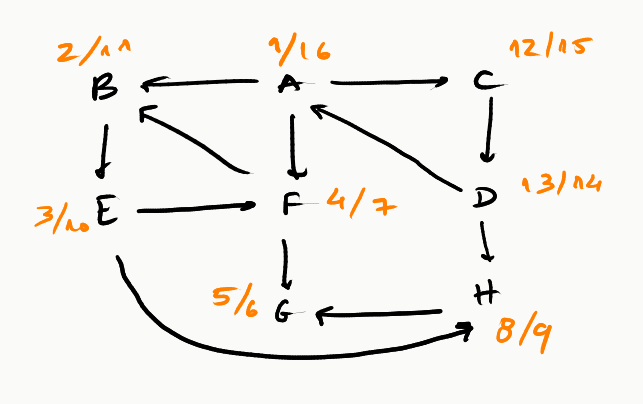 2/11 1/16 12/15
B A C
3/10 E F 4/7 D 13/14
5/6 G H
8/9